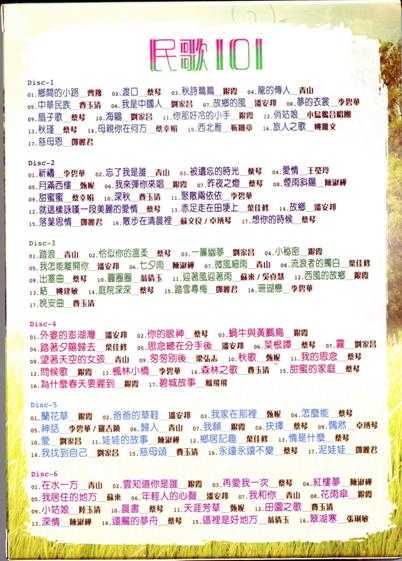 民歌101
Disc-1
01.鄉間的小路 齊豫 02.渡口 蔡琴 03.秋詩篇篇 銀霞 04.龍的傳人 青山
05.中華民族 費玉清 06.我是中國人 劉家昌 07.故鄉的風 潘安邦 08.夢的衣裳 李碧華
09.扇子歌 蔡琴 10.海鷗 劉家昌 11.你那好冷的小手 銀霞 12.俏姑娘
13.秋瑾 蔡琴 14.母親你在何方 蔡幸娟 15.西北雁 16.旅人之歌
17.慈母恩 鄧麗君
Disc-2
01.祈禱 李碧華 02.忘了我是誰 青山 03.被遺忘的時光 蔡琴 04.愛情 王瑩玲
05.月滿西樓 甄妮 06.我來彈你來唱 銀霞 07.昨夜之燈 蔡琴 08.煙雨斜陽 陳淑樺
09.甜蜜蜜 蔡幸娟 10.深秋 費玉清 11.聚散兩依依 李碧華
12.就這樣詠嘆一段美麗的愛情 蔡琴 13.赤足走在田埂上 葉佳修 14.故鄉 潘安邦
15.落葉思情 鄧麗君 16.散步在清晨裡 蘇文玟/卓琇琴 17.想你的時候 蔡琴
Disc-3
01.踏浪 青山 02.恰似你的溫柔 蔡琴 03.一簾幽夢 劉家昌 04.小秘密 銀霞
05.我怎能離開你 潘安邦 06.七夕雨 陳淑樺 07.微風細雨 青山 08.流浪者的獨白 葉佳修
09.出塞曲 蔡琴 10.圓圈圈 翁倩玉 11.迎著風迎著雨 12.西風的故鄉 銀霞
13.結 姚建敏 14.庭院深深 蔡琴 15.踏雪尋梅 鄧麗君 16.珊瑚戀 李碧華
17.晚安曲 費玉清
Disc-4
01.外婆的澎湖灣 潘安邦 02.你的眼神 蔡琴 03.蝸牛與黃鸝鳥 銀霞
04.踏著夕陽歸去 葉佳修 05.思念總在分手後 潘安邦 06.菜根譚 蔡琴 07.霧 劉家昌
08.望著天空的女孩 青山 09.匆匆別後 梁弘志 10.秋歌 甄妮 11.我的思念 蔡琴
12.問候歌 銀霞 13.楓林小橋 李碧華 14.森林之歌 費玉清 15.甜蜜的家庭 蔡琴
16.為什麼春天要遲到 銀霞 17.碧城故事 鳳飛飛
Disc-5
01.蘭花草 銀霞 02.爸爸的草鞋 潘安邦 03.我家在那裡 甄妮 04.怎麼能 蔡琴
05.神話 李碧華/羅吉鎮 06.歸人 青山 07.我願 銀霞 08.抉擇 蔡琴 09.偶然 卓琇琴
10.愛 劉家昌 11.娃娃的故事 陳淑樺 12.鄉居記趣 葉佳修 13.情是什麼 蔡琴
14.我找到自己 劉家昌 15.慈母頌 費玉清 15.永遠永遠不變 蔡琴 17.泥娃娃 鄧麗君
Disc-6
01.在水一方 青山 02.雲知道你是誰 銀霞 03.再愛我一次 蔡琴 04.紅樓夢 陳淑樺
05.我居住的地方 蘇來 06.年輕人的心聲 潘安邦 07.我和你 青山 08.花雨傘 銀霞
09.小姑娘 10.晨書 蔡琴 11.天涯芳草 甄妮 12.田園之歌 費玉清
13.深情 陳淑樺 14.遠颺的夢舟 蔡琴 15.這裡是好地方 翁倩玉 16.翠湖寒 張琍敏